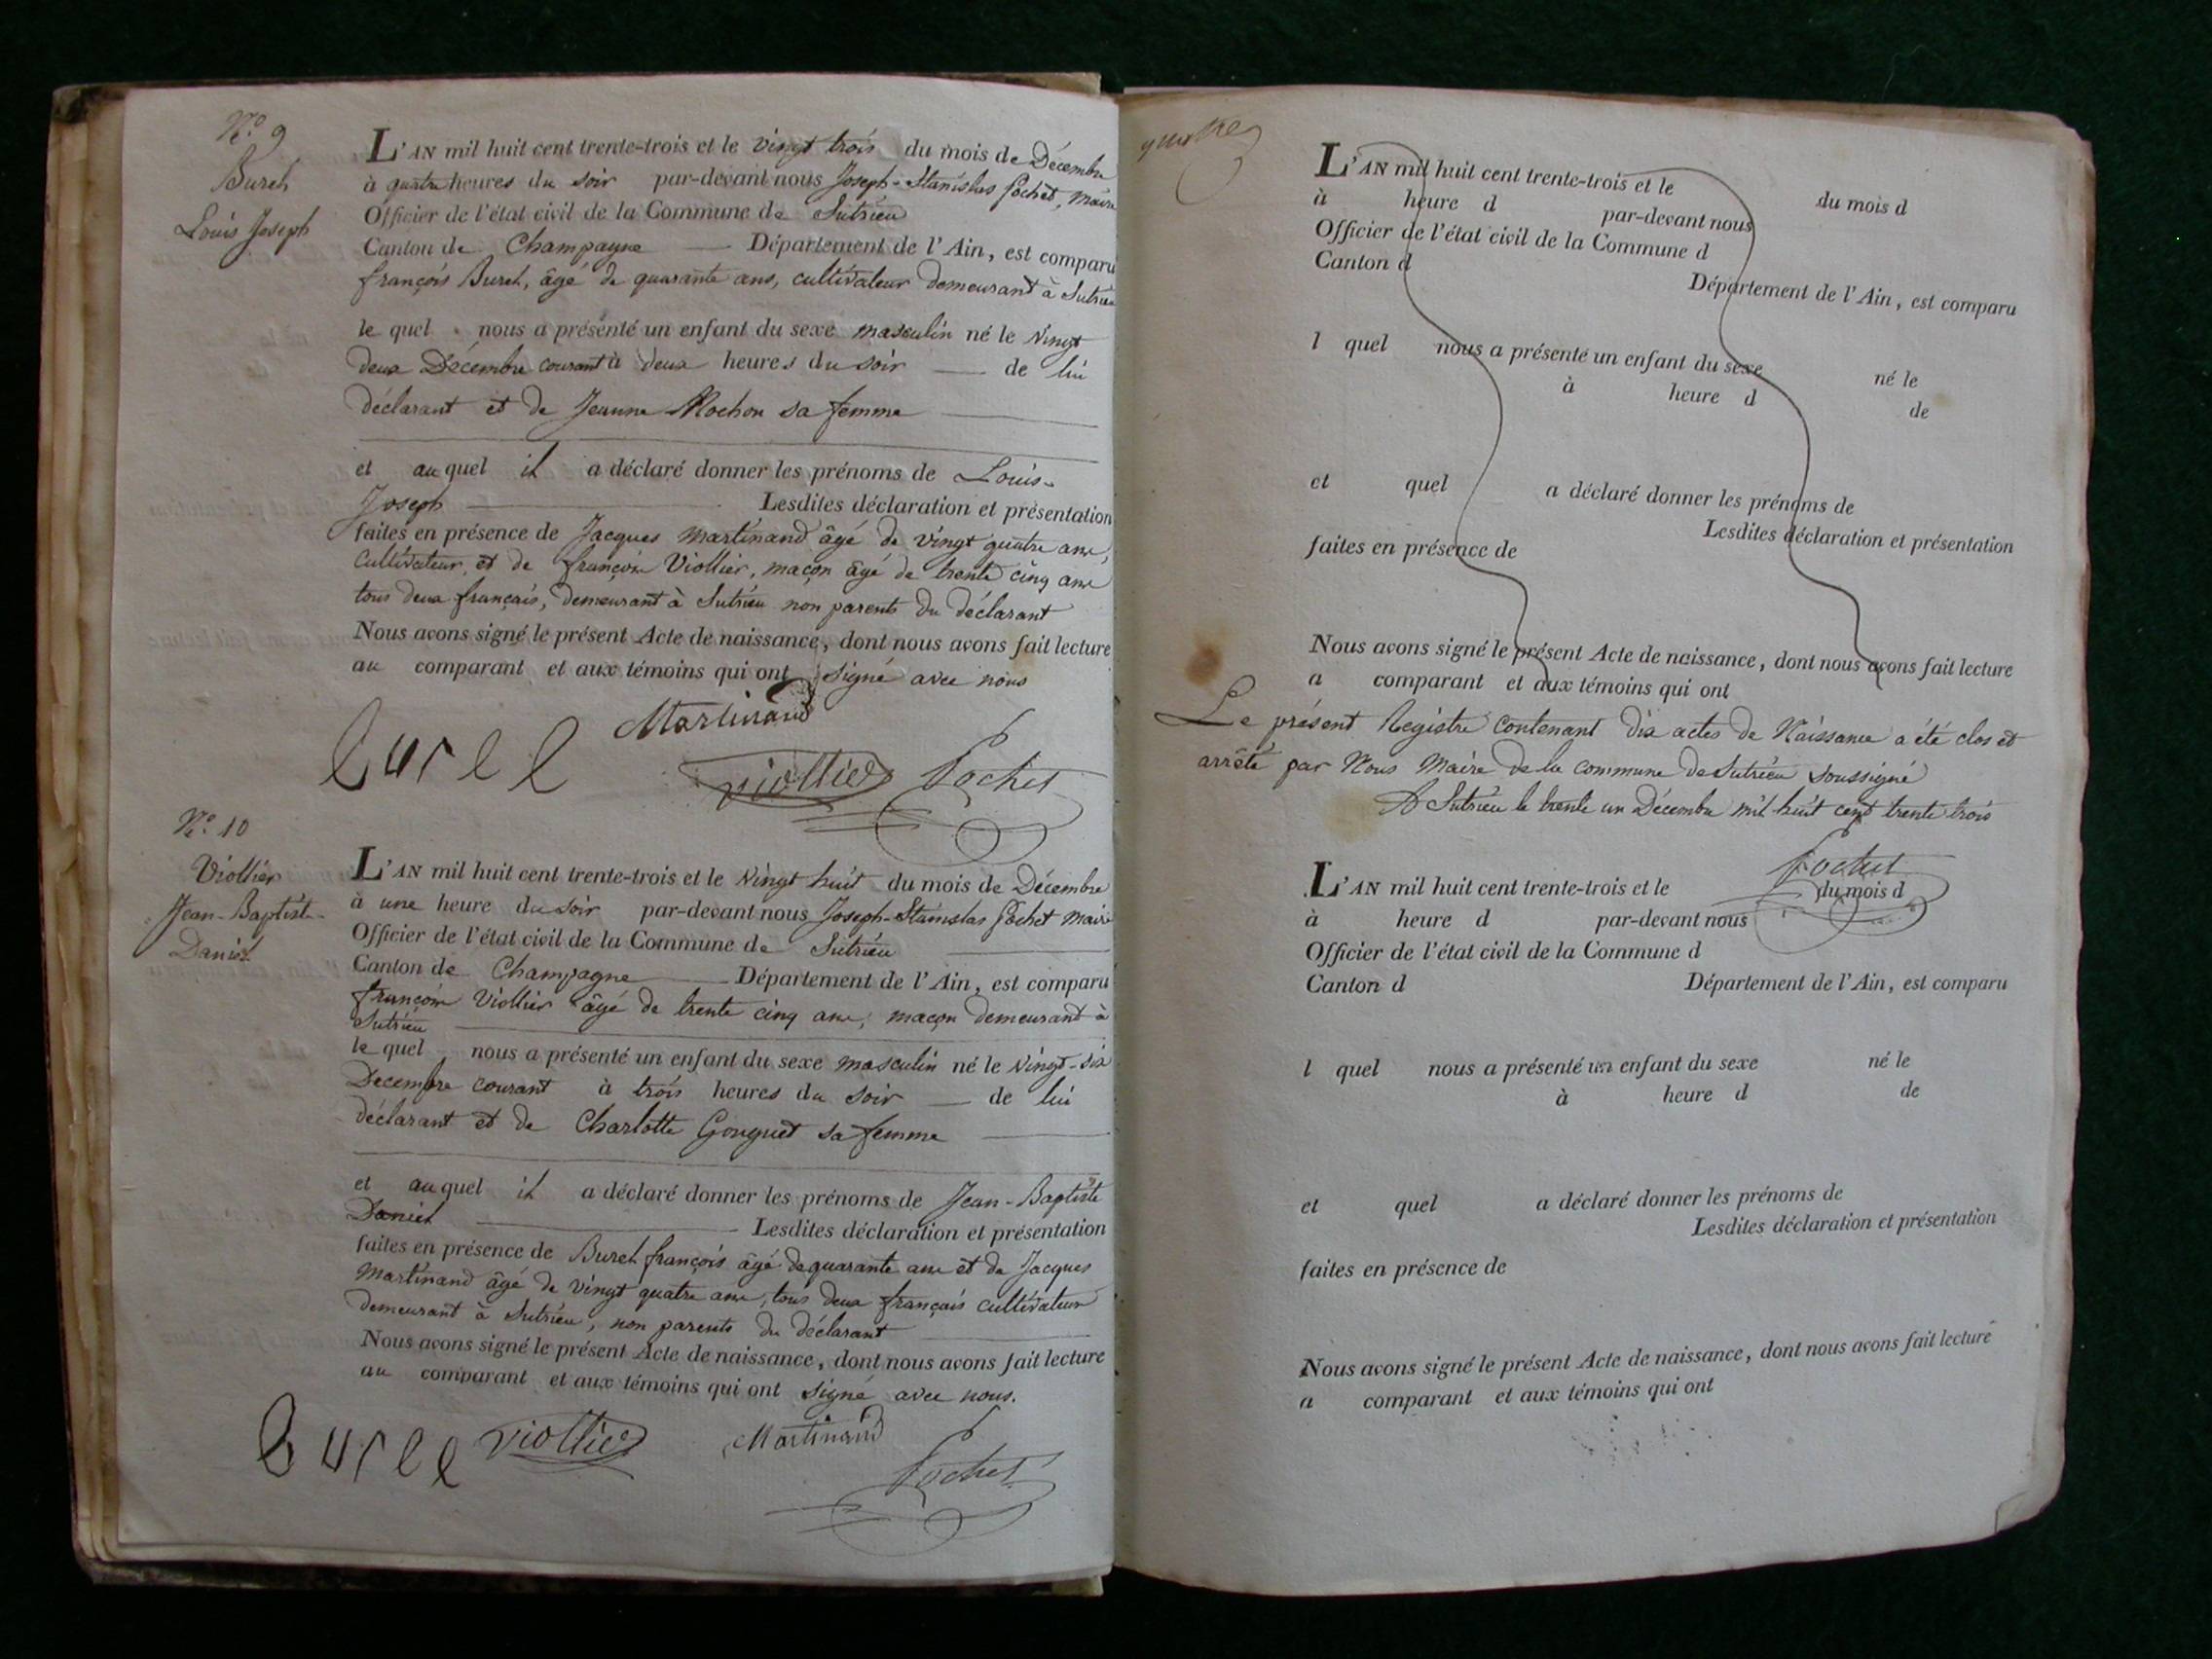 N.º 9
Buret
Louis Joseph
L'AN mil huit cent trente-trois et le vingt trois du mois de Décembre
à quatre heures du soir par-devant nous Joseph-Stanislas Pochet, Maire
Officier de l'état civil de la Commune de Sutrieu
Canton de Champagne Département de l'Ain, est comparu
françois Buret, âgé de quarante ans, cultivateur demeurant à Sutrieu
le quel nous a présenté un enfant du sexe masculin né le vingt
deux Décembre courant à deux heures du soir de lui
déclarant et de Jeanne Mochon sa femme
et au quel il a déclaré donner les prénoms de Louis-
Joseph Lesdites déclaration et présentation
faites en présence de Jacques Martinand âgé de vingt quatre ans,
cultivateur, et de françois Viollier, maçon âgé de trente cinq ans
tous deux français, demeurant à Sutrieu non parents du déclarant
Nous avons signé le présent Acte de naissance, dont nous avons fait lecture
au comparant et aux témoins qui ont signé avec nous
Martinand
viollier Pochet
N.º 10
Viollier
Jean-Baptiste-
Daniel
L'AN mil huit cent trente-trois et le vingt huit du mois de Décembre
à une heure du soir par-devant nous Joseph-Stanislas Pochet Maire
Officier de l'état civil de la Commune de Sutrieu
Canton de Champagne Département de l'Ain, est comparu
françois Viollier âgé de trente cinq ans, maçon demeurant à
Sutrieu
le quel nous a présenté un enfant du sexe masculin né le vingt-six
Decembre courant à trois heures du soir de lui
déclarant et de Charlotte Gonguet sa femme
et au quel il a déclaré donner les prénoms de Jean-Baptiste
Daniel Lesdites déclaration et présentation
faites en présence de Buret françois âgé de quarante ans et de Jacques
Martinand âgé de vingt quatre ans, tous deux français cultivateurs
demeurant à Sutrieu, non parents du déclarant
Nous avons signé le présent Acte de naissance, dont nous avons fait lecture
au comparant et aux témoins qui ont signé avec nous.
viollier Martinand
Pochet
L'AN mil huit cent trente-trois et le du mois d
à heure d par-devant nous
Officier de l'état civil de la Commune d
Canton d Département de l'Ain, est comparu
l quel nous a présenté un enfant du sexe né le
à heure d de
et quel a déclaré donner les prénoms de
Lesdites déclaration et présentation
faites en présence de
Nous avons signé le présent Acte de naissance, dont nous avons fait lecture
a comparant et aux témoins qui ont
Le présent Registre contenant dix actes de Naissance a été clos et
arrêté par Nous Maire de la commune de Sutrieu soussigné
A Sutrieu le trente un Décembre mil huit cent trente trois
Pochet
L'AN mil huit cent trente-trois et le du mois d
à heure d par-devant nous
Officier de l'état civil de la Commune d
Canton d Département de l'Ain, est comparu
l quel nous a présenté un enfant du sexe né le
à heure d de
et quel a déclaré donner les prénoms de
Lesdites déclaration et présentation
faites en présence de
Nous avons signé le présent Acte de naissance, dont nous avons fait lecture
a comparant et aux témoins qui ont